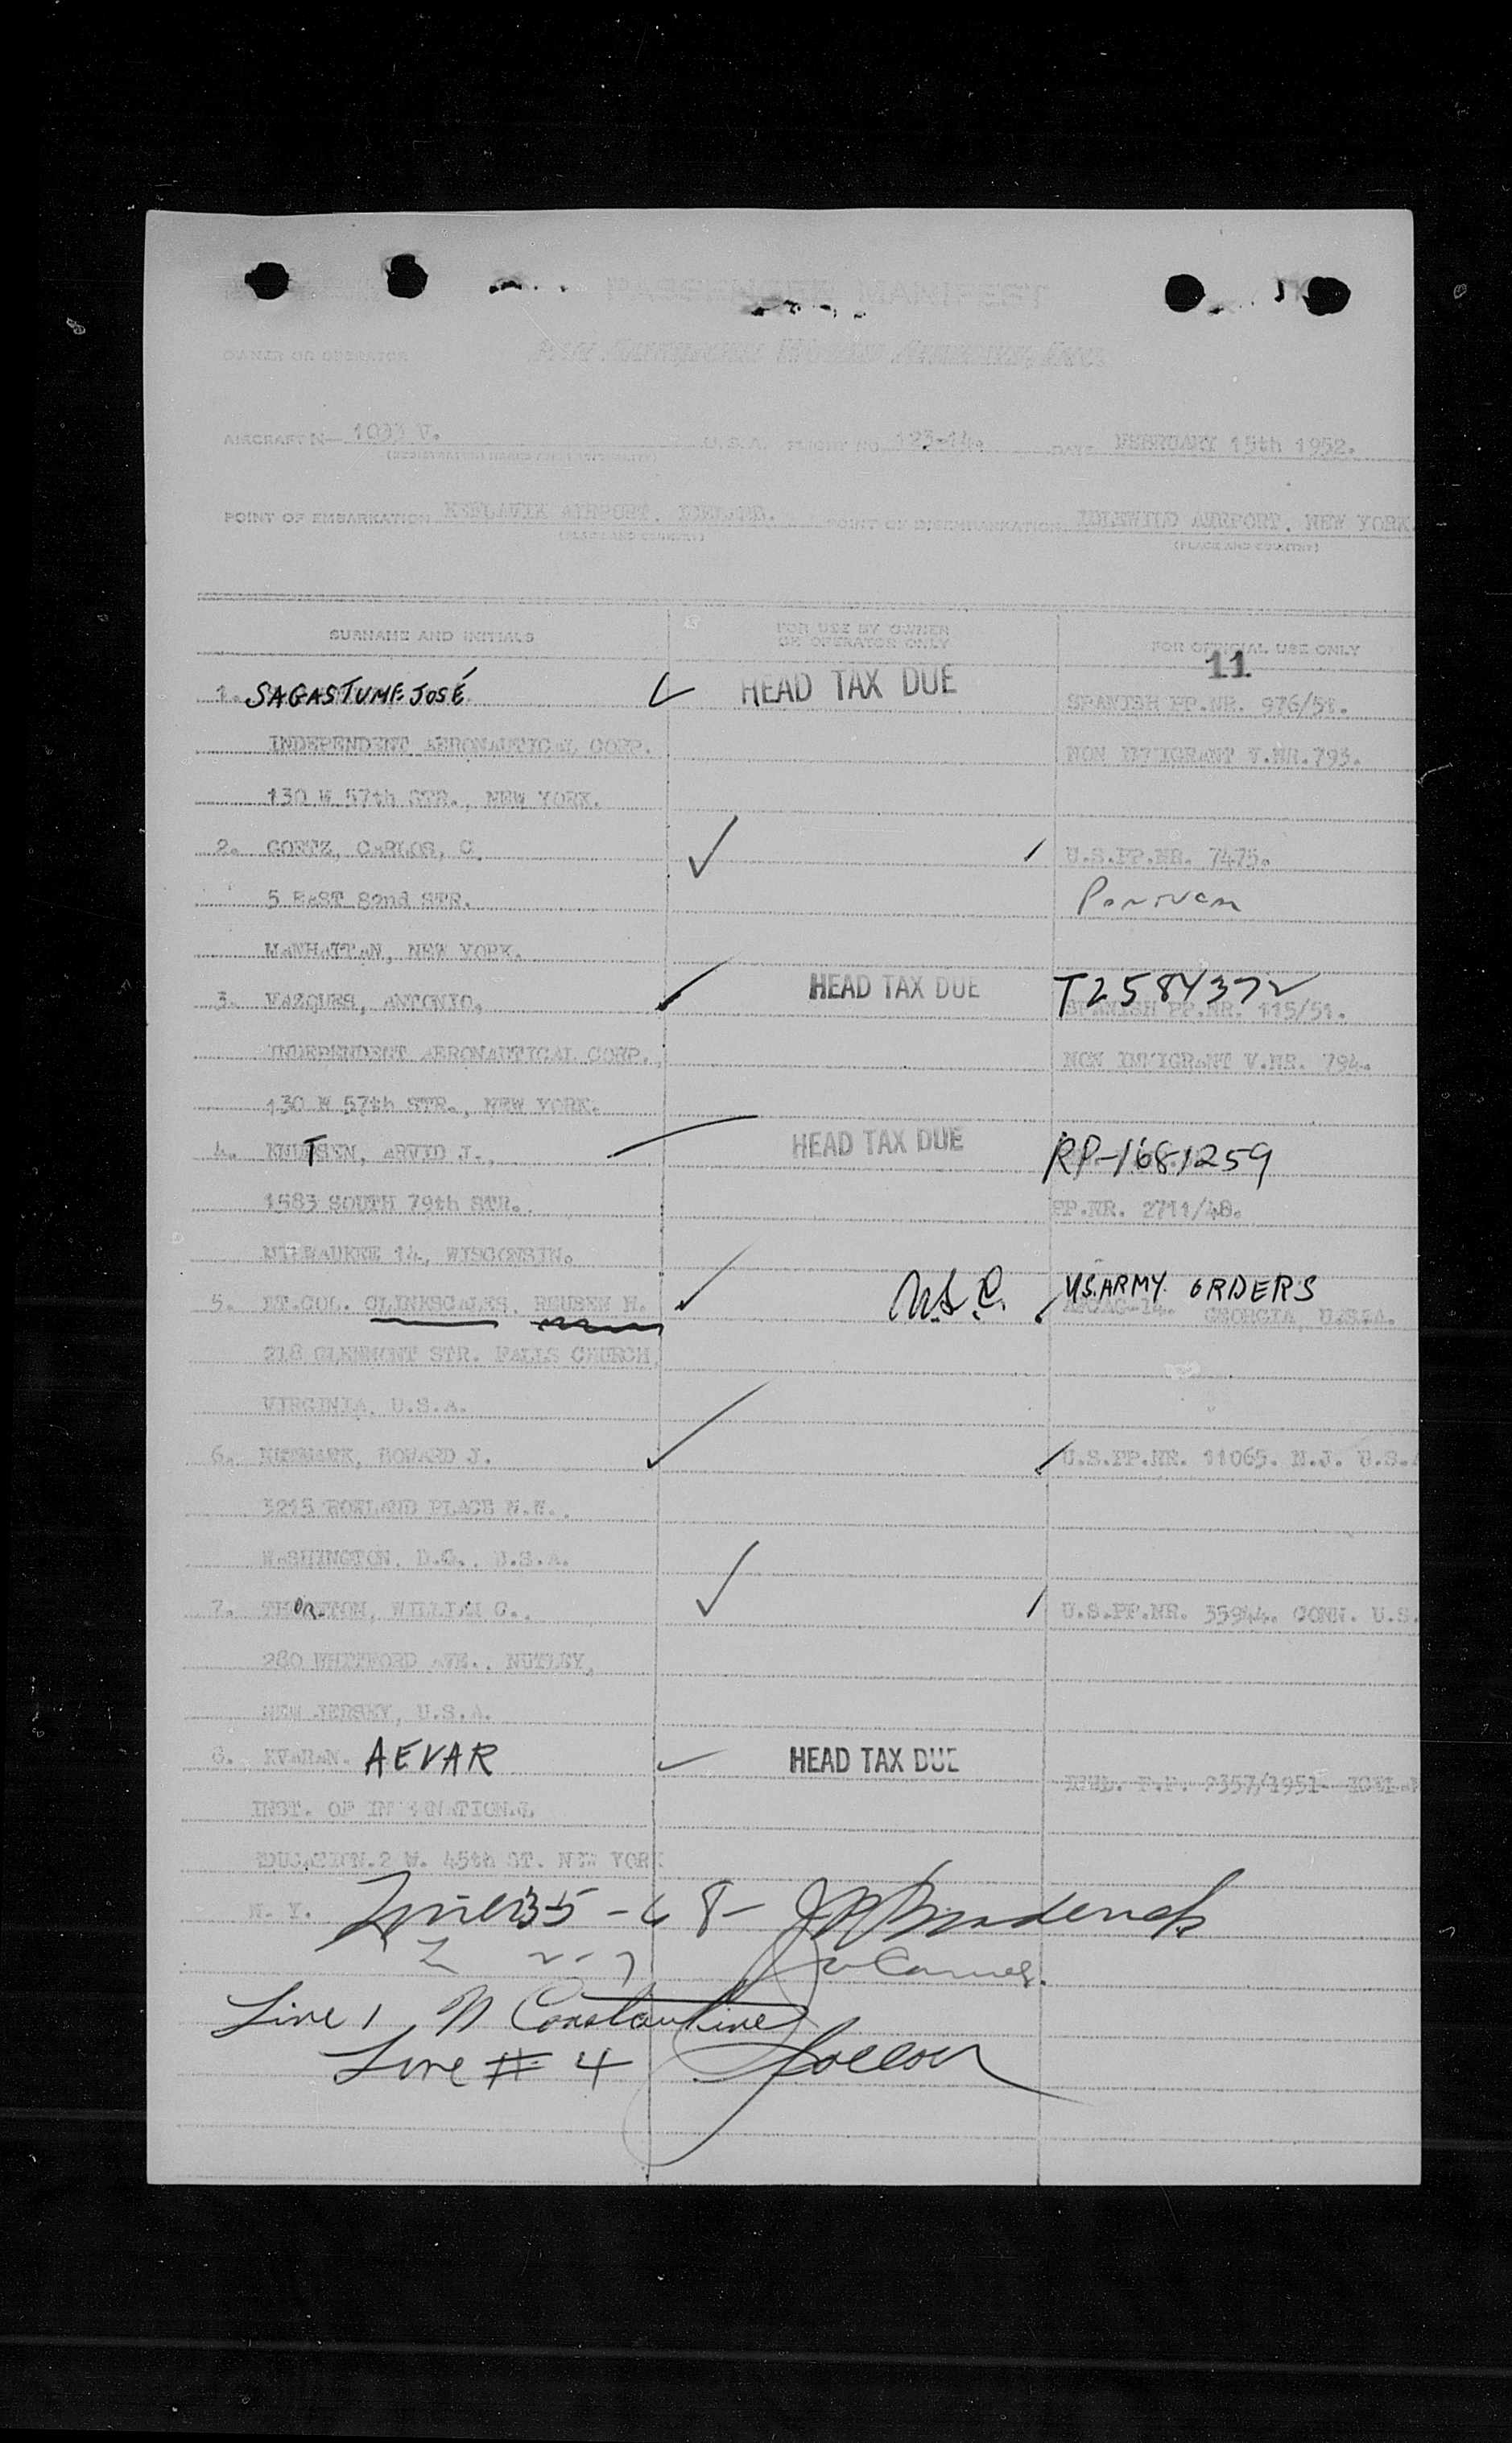 PASSENGER MANIFEST
OWNER OR OPERATOR Pan American World Airways, Inc.
AIRCRAFT N— 1033 V. U.S.A. FLIGHT NO. 123-14. DATE FEBRUARY 15th 1952.
POINT OF EMBARKATION KEFLAVIK AIRPORT, ICELAND. POINT OF DISEMBARKATION IDLEWILD AIRPORT, NEW YORK.
(PLACE AND COUNTRY) (PLACE AND COUNTRY)
SURNAME AND INITIALS FOR USE BY OWNER OR OPERATOR ONLY FOR OFFICIAL USE ONLY
11
1. SAGASTUME JOSÉ HEAD TAX DUE SPANISH PP.NR. 976/51.
INDEPENDENT AERONAUTICAL CORP. NON IMMIGRANT V.NR.793.
130 W 57th STR., NEW YORK.
2. GOETZ, CARLOS, C. U.S.PP.NR. 7475.
5 EAST 82nd STR.
MANHATTAN, NEW YORK.
3. VAZQUES, ANTONIO, HEAD TAX DUE T2584372
SPANISH PP.NR. 115/51.
INDEPENDENT AERONAUTICAL CORP., NON IMMIGRANT V.NR. 794.
130 W 57th STR., NEW YORK.
4. KNUTSEN, ARVID J., HEAD TAX DUE RP-1681259
1583 SOUTH 79th STR. PP.NR. 2711/48.
MILWAUKEE 14, WISCONSIN.
5. LT.COL. CLINKSCALES, REUBEN H. U.S.C. U.S. ARMY ORDERS
GEORGIA, U.S.A.
218 GLENMONT STR. FALLS CHURCH,
VIRGINIA, U.S.A.
6. HOWARD J. U.S.PP.NR. 11065. N.J. U.S.A
3215 ROWLAND PLACE N.W.,
WASHINGTON, D.C., U.S.A.
7. WILLIAM C., U.S.PP.NR. 35944. CONN. U.S.
280 WHITFORD AVE., NUTLEY,
NEW JERSEY, U.S.A.
8. KVARAN. AEVAR HEAD TAX DUE ICEL. P.P. 9357/1951
INST. OF INTERNATIONAL
EDUCATION. 2 W. 45th ST. NEW YORK
N. Y. Lines 3 5 - 6 8 - Broderick
2 - 7
Line 1 N Constantine
Line # 4